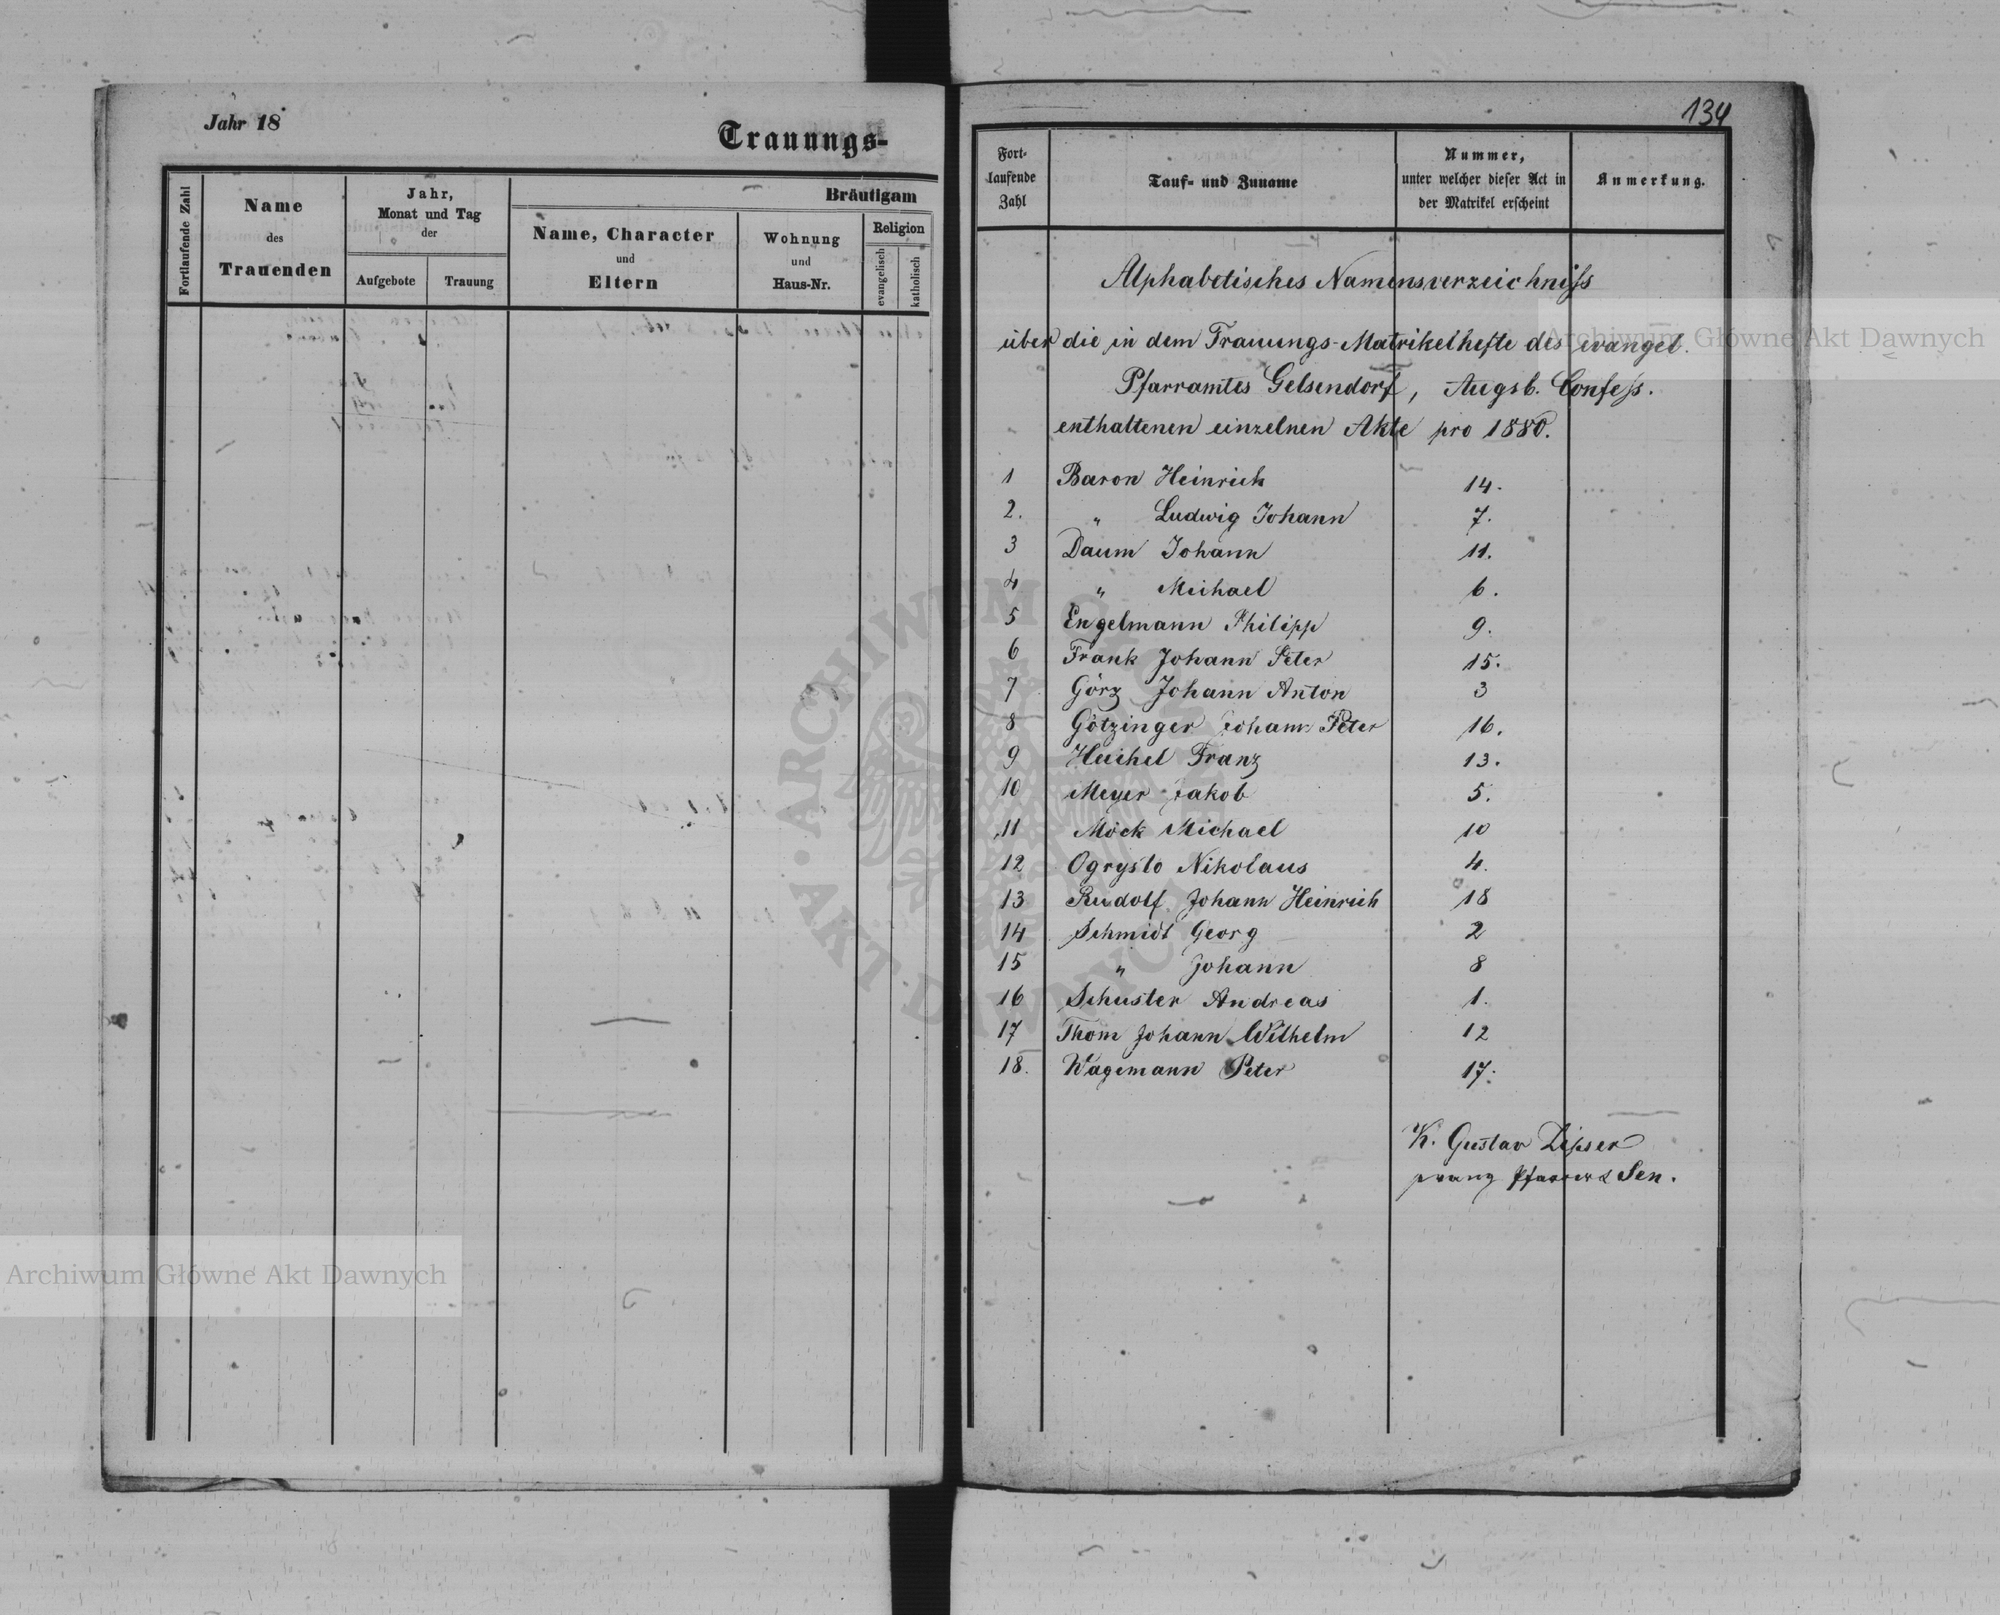 Jahr 18
Trauungs-
Fortlaufende Zahl
Name
des
Trauenden
Jahr,
Monat und Tag
der
Aufgebote
Trauung
Bräutigam
Name, Character
und
Eltern
Wohnung
und
Haus-Nr.
Religion
evangelisch
katholisch
134
Fort-
laufende
Zahl
Tauf- und Zuname
Nummer,
unter welcher dieser Act in
der Matrikel erscheint
Anmerkung.
Alphabetisches Namensverzeichniss
über die in dem Trauungs-Matrikelhefte des evangel.
Pfarramtes Gelsendorf, Augsb. Confess.
enthaltenen einzelnen Akte pro 1880.
1 Baron Heinrich 14.
2. " Ludwig Johann 7.
3 Daum Johann 11.
4 " Michael 6.
5 Engelmann Philipp 9.
6 Frank Johann Peter 15.
7 Görz Johann Anton 3
8 Götzinger Johann Peter 16.
9 Heichel Franz 13.
10 Meyer Jakob 5.
11 Möck Michael 10
12 Ogrysto Nikolaus 4.
13 Rudolf Johann Heinrich 18
14 Schmidt Georg 2
15 " Johann 8
16 Schuster Andreas 1.
17 Thom Johann Wilhelm 12
18. Wagemann Peter 17.
K. Gustav Lipser
Pfarrer & Sen.
Archiwum Główne Akt Dawnych
Archiwum Główne Akt Dawnych